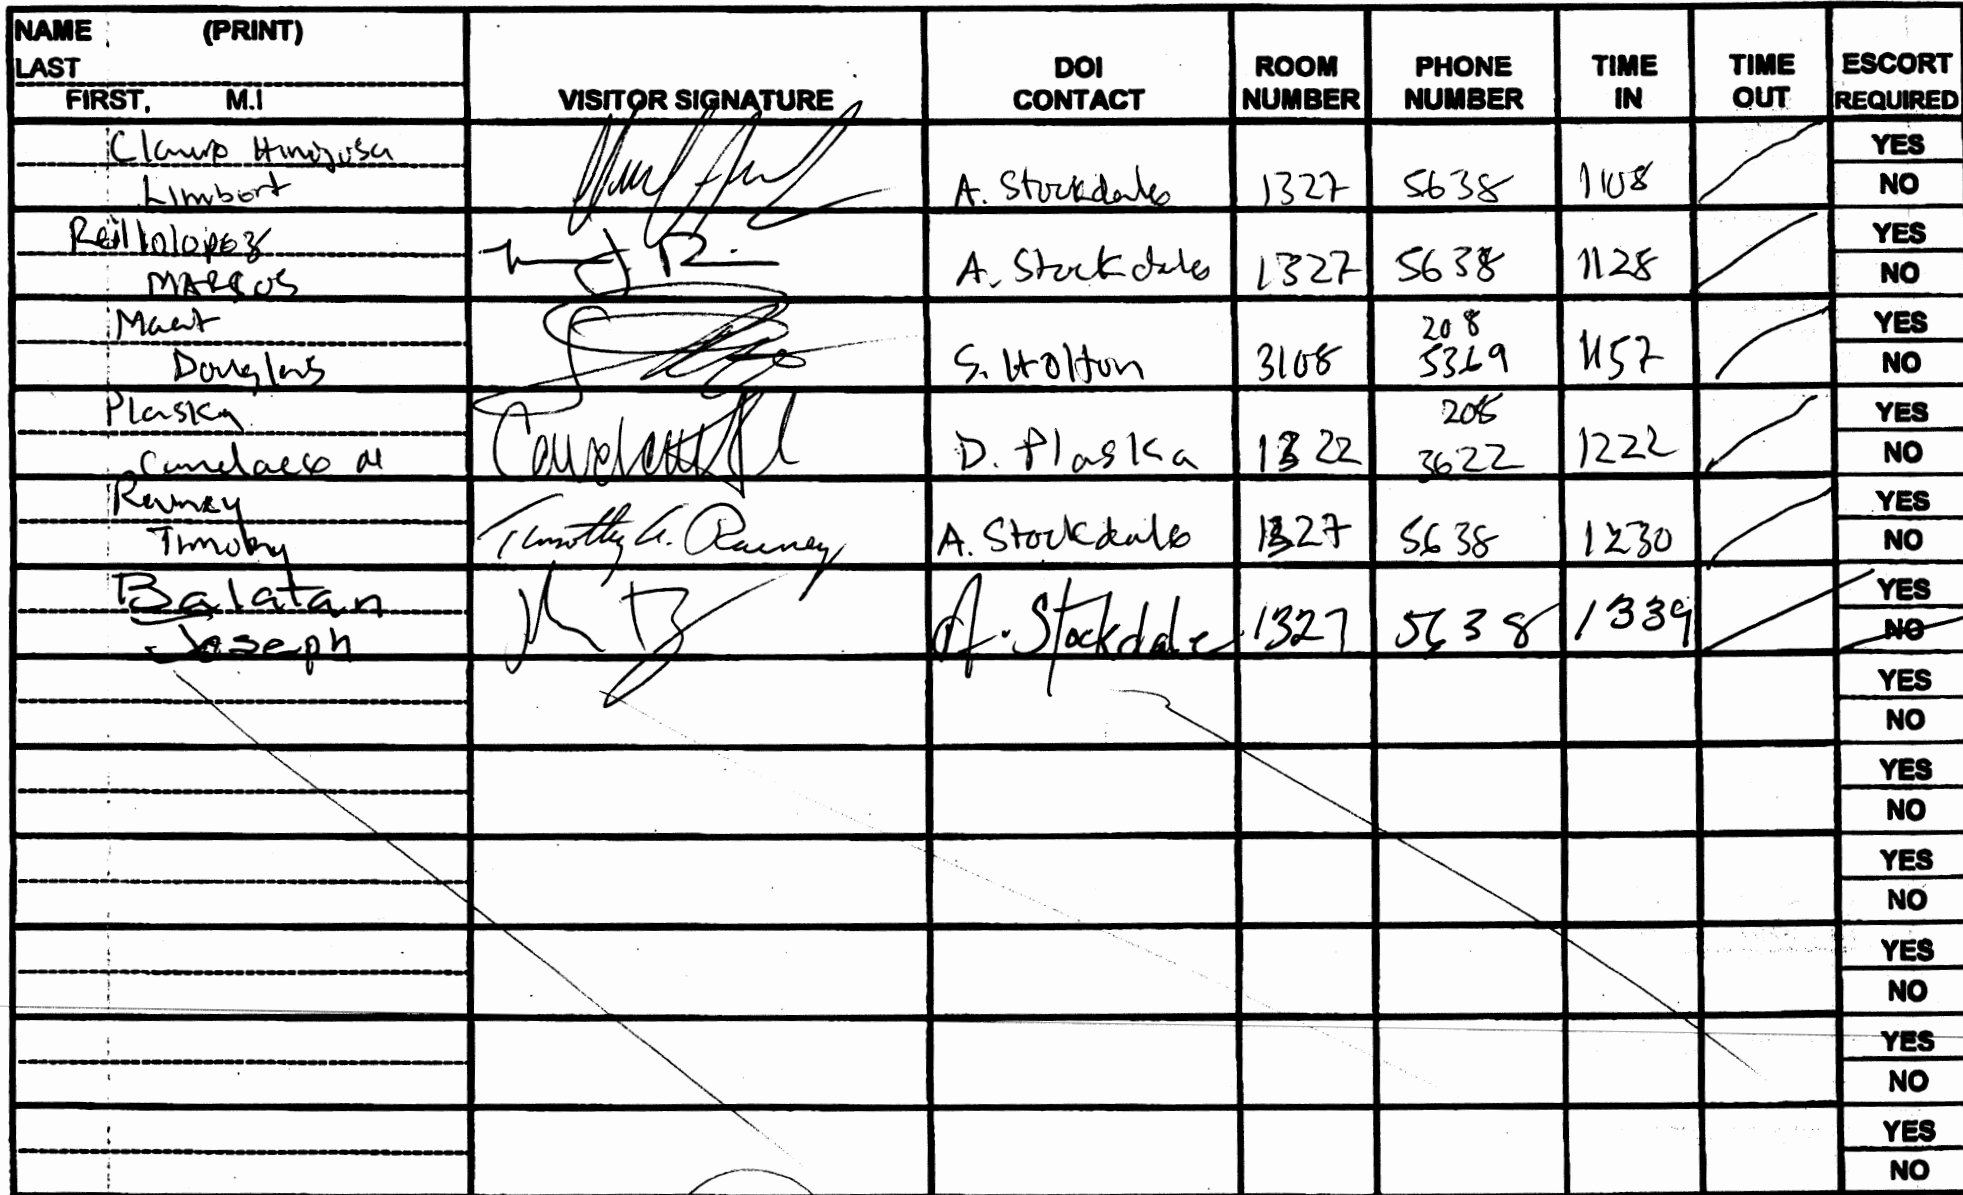 NAME (PRINT)
LAST
FIRST, M.I
VISITOR SIGNATURE
DOI CONTACT
ROOM NUMBER
PHONE NUMBER
TIME IN
TIME OUT
ESCORT REQUIRED
Limbort
A. Stockdale 1327 5638 1108
YES
NO
MARCOS
A. Stockdale 1327 5638 1128
YES
NO
Douglas
S. Holton 3108 208 5369 1157
YES
NO
Plaska
D. Plaska 1322 208 3622 1222
YES
NO
Timothy
Timothy A. Rainey
A. Stockdale 1327 5638 1230
YES
NO
Balatan
Joseph
A. Stockdale 1327 5638 1339
YES
NO
YES
NO
YES
NO
YES
NO
YES
NO
YES
NO
YES
NO